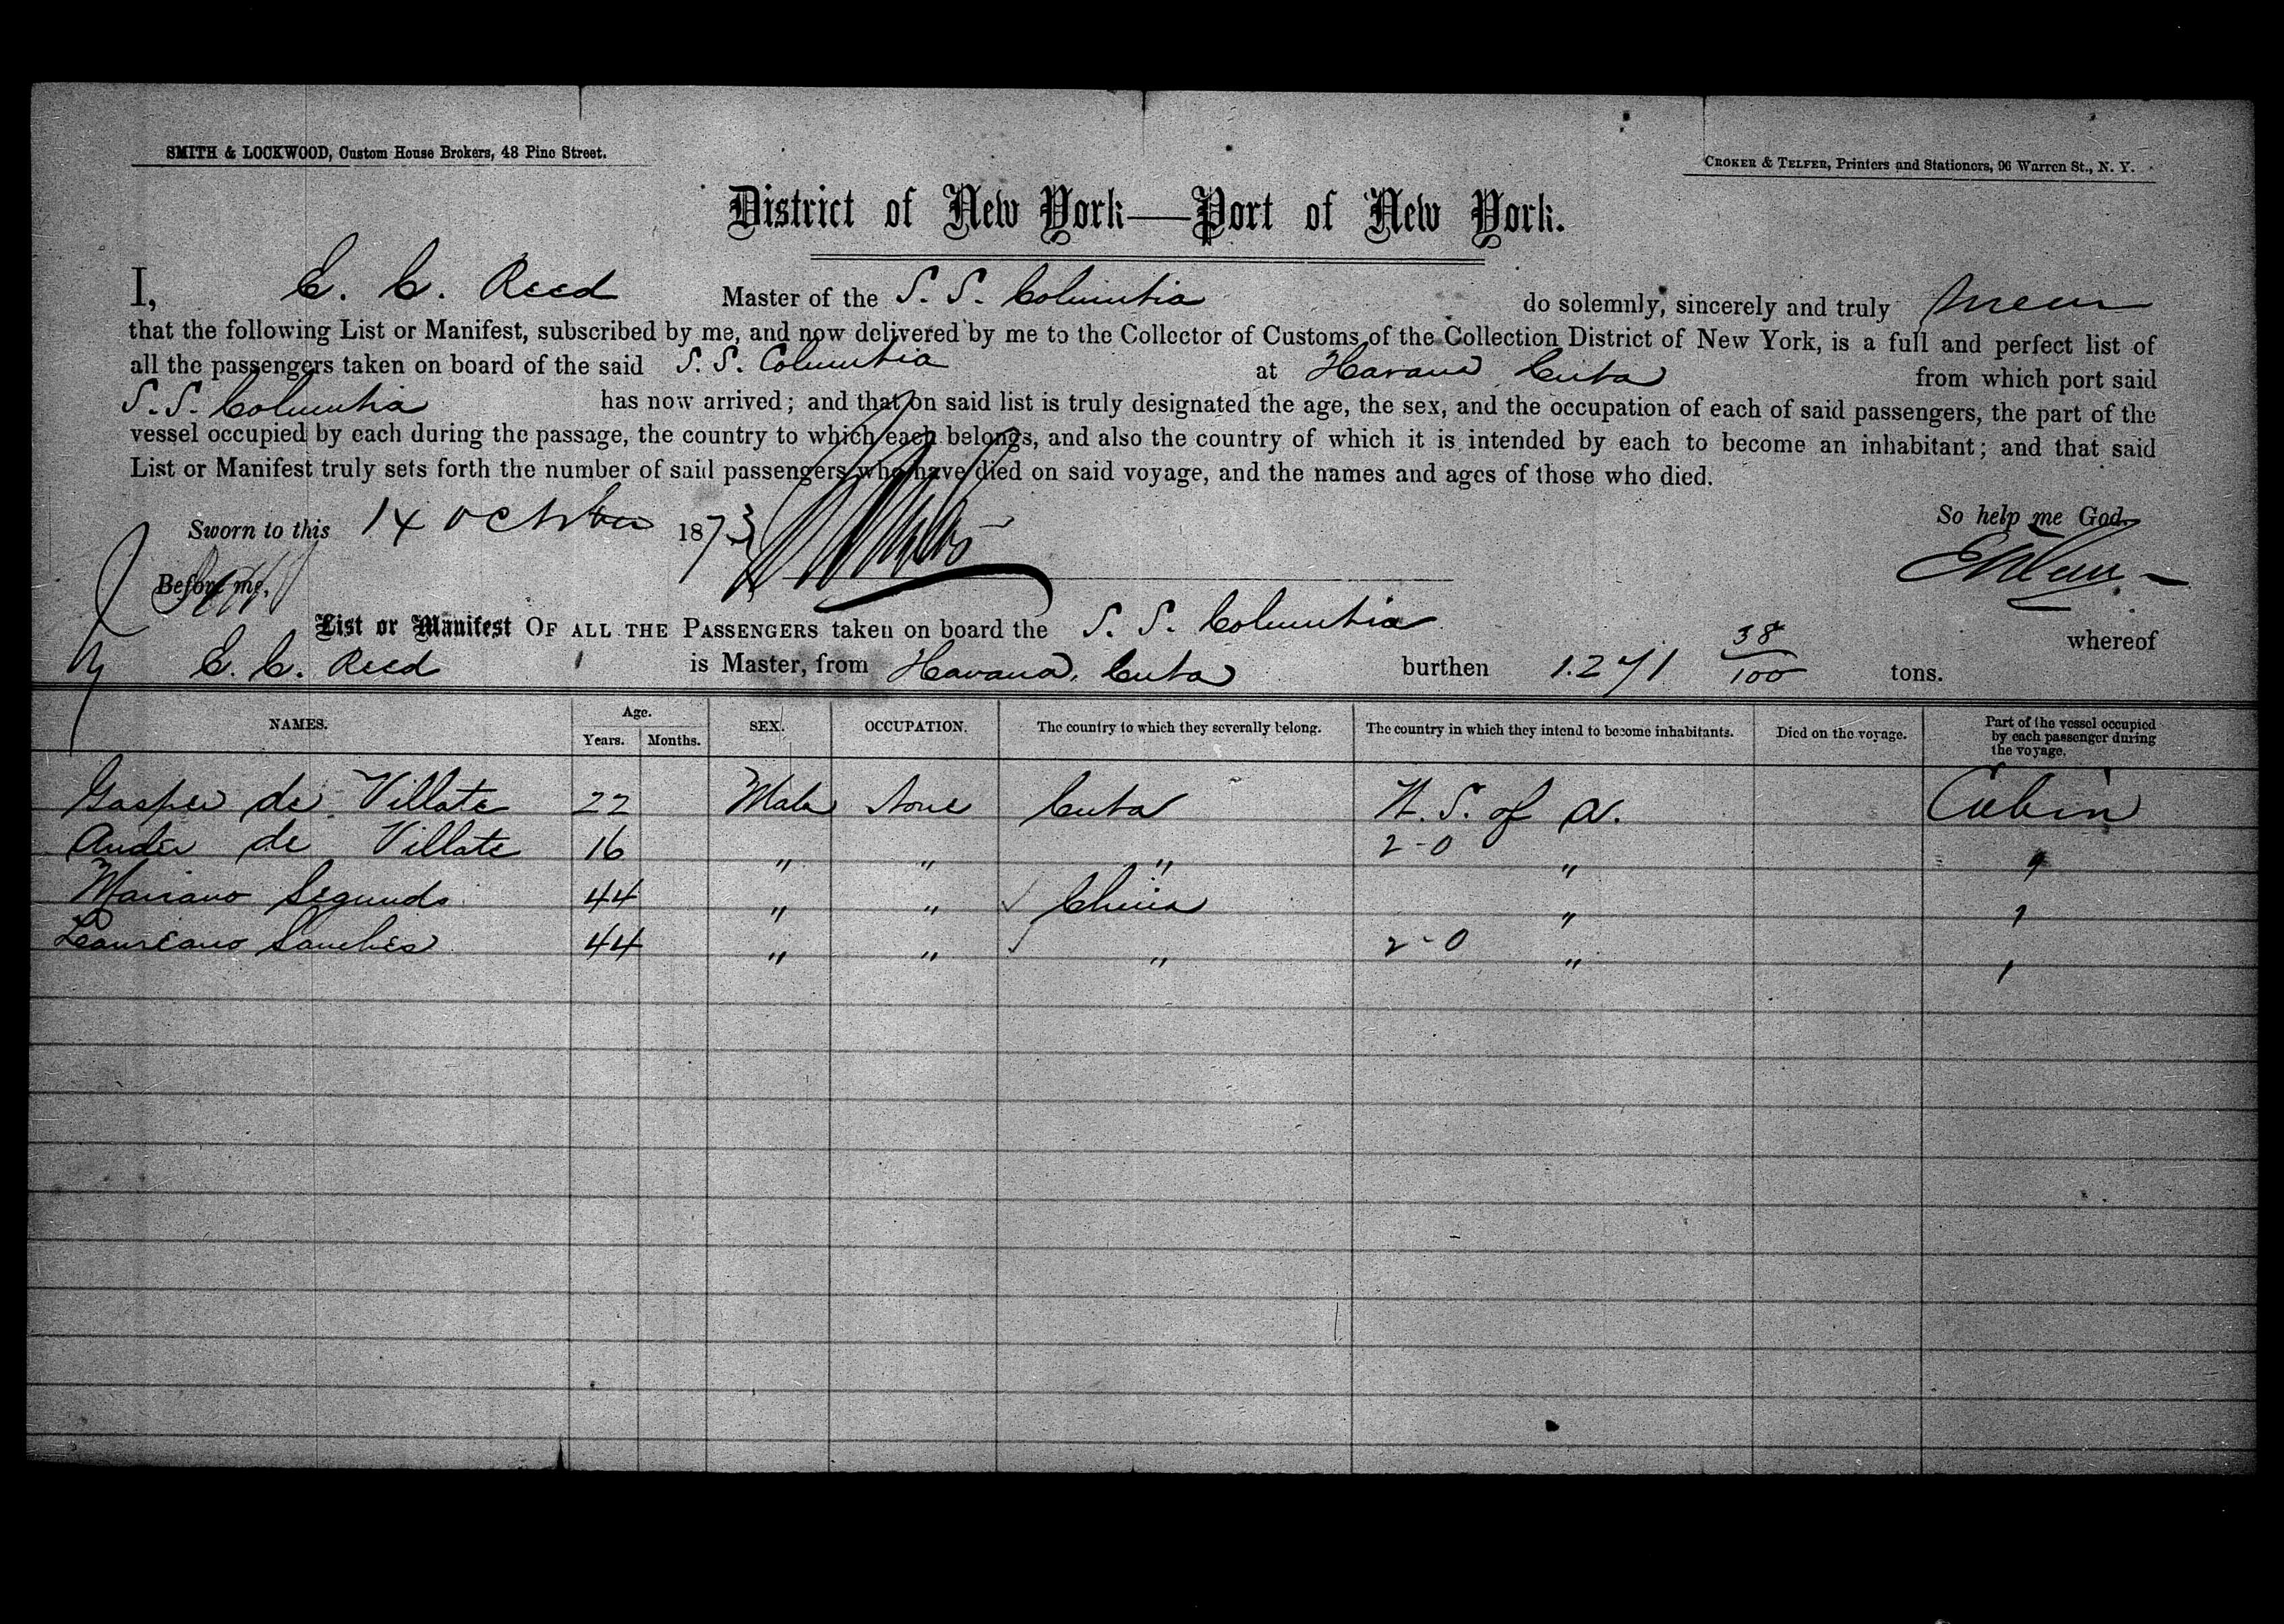 SMITH & LOCKWOOD, Custom House Brokers, 48 Pine Street.
CROKER & TELFER, Printers and Stationers, 96 Warren St., N. Y.
District of New York—Port of New York.
I, E. C. Reed Master of the S. S. Columbia do solemnly, sincerely and truly swear
that the following List or Manifest, subscribed by me, and now delivered by me to the Collector of Customs of the Collection District of New York, is a full and perfect list of
all the passengers taken on board of the said S. S. Columbia at Havana Cuba from which port said
S. S. Columbia has now arrived; and that on said list is truly designated the age, the sex, and the occupation of each of said passengers, the part of the
vessel occupied by each during the passage, the country to which each belongs, and also the country of which it is intended by each to become an inhabitant; and that said
List or Manifest truly sets forth the number of said passengers who have died on said voyage, and the names and ages of those who died.
So help me God.
Sworn to this 14 October 1873
Before me,
List or Manifest OF ALL THE PASSENGERS taken on board the S. S. Columbia whereof
E. C. Reed is Master, from Havana, Cuba burthen 1.271 38/100 tons.
NAMES. Age. Years. Months. SEX. OCCUPATION. The country to which they severally belong. The country in which they intend to become inhabitants. Died on the voyage. Part of the vessel occupied by each passenger during the voyage.
Gasper de Villate 22 Male None Cuba U. S. of A. Cabin
de Villate 16 " " " 2-0 "
Mariano Segundo 44 " " China "
Laureano Sanches 44 " " " 2-0 "